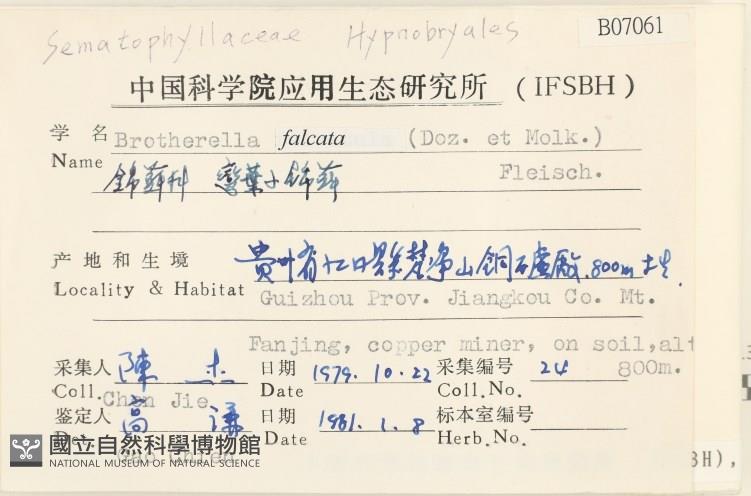 B07061
Sematophyllaceae Hypnobryales
中国科学院应用生态研究所 (IFSBH)
学 名 Brotherella falcata (Doz. et Molk.)
Name Fleisch.
錦蘚科 彎葉小錦蘚
产地和生境 貴州省江口縣梵净山銅礦廠 800m 土生.
Locality & Habitat Guizhou Prov. Jiangkou Co. Mt.
Fanjing, copper miner, on soil,alt
800m.
采集人 陳 杰 日期 1979.10.22 采集编号 24
Coll. Chen Jie Date Coll.No.
鉴定人 高 谦 日期 1981.1.8 标本室编号
Date Herb.No.
Gao Chien
國立自然科學博物館
NATIONAL MUSEUM OF NATURAL SCIENCE
BH),